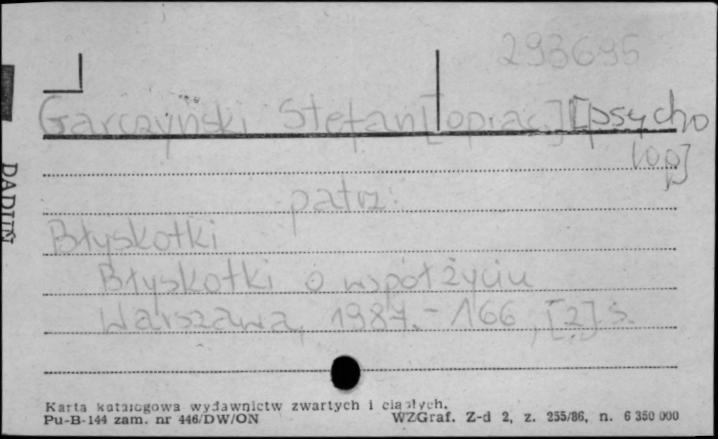 293695
Garczyński Stefan [oprac.] [psycho
log]
patrz:
Błyskotki
Błyskotki o współżyciu
Warszawa, 1987. - 166, [2] s.
Karta katalogowa wydawnictw zwartych i ciągłych.
Pu-B-144 zam. nr 446/DW/ON WZGraf. Z-d 2, z. 255/86, n. 6 350 000